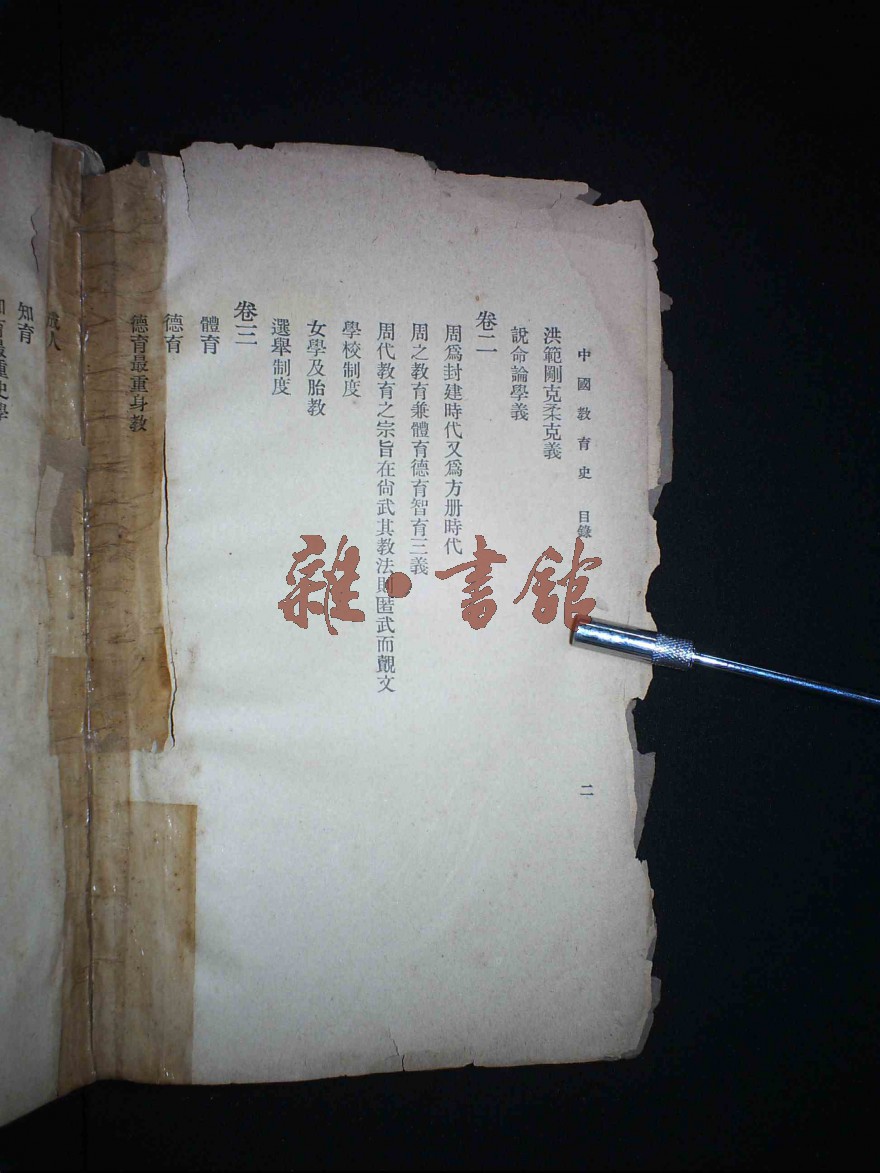 中國教育史 目錄 二
洪範剛克柔克義
說命論學義
卷二
周爲封建時代又爲方册時代
周之教育兼體育德育智育三義
周代教育之宗旨在尙武其教法則匿武而覿文
學校制度
女學及胎教
選舉制度
卷三
體育
德育
德育最重身教
人
知育
知育最重史學
雜·書館